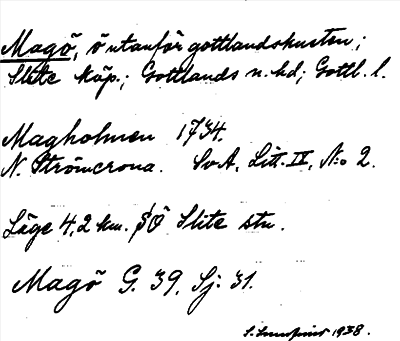 Magö, ö utanför gottlandskusten;
Slite köp.; Gottlands n. hd; Gottl. l.
Magholmen 1734.
N. Strömcrona. SvA, Litt. IX, No 2.
Läge 4,2 km. SÖ Slite stn.
Magö G. 39, Sj: 31.
S. 1938.